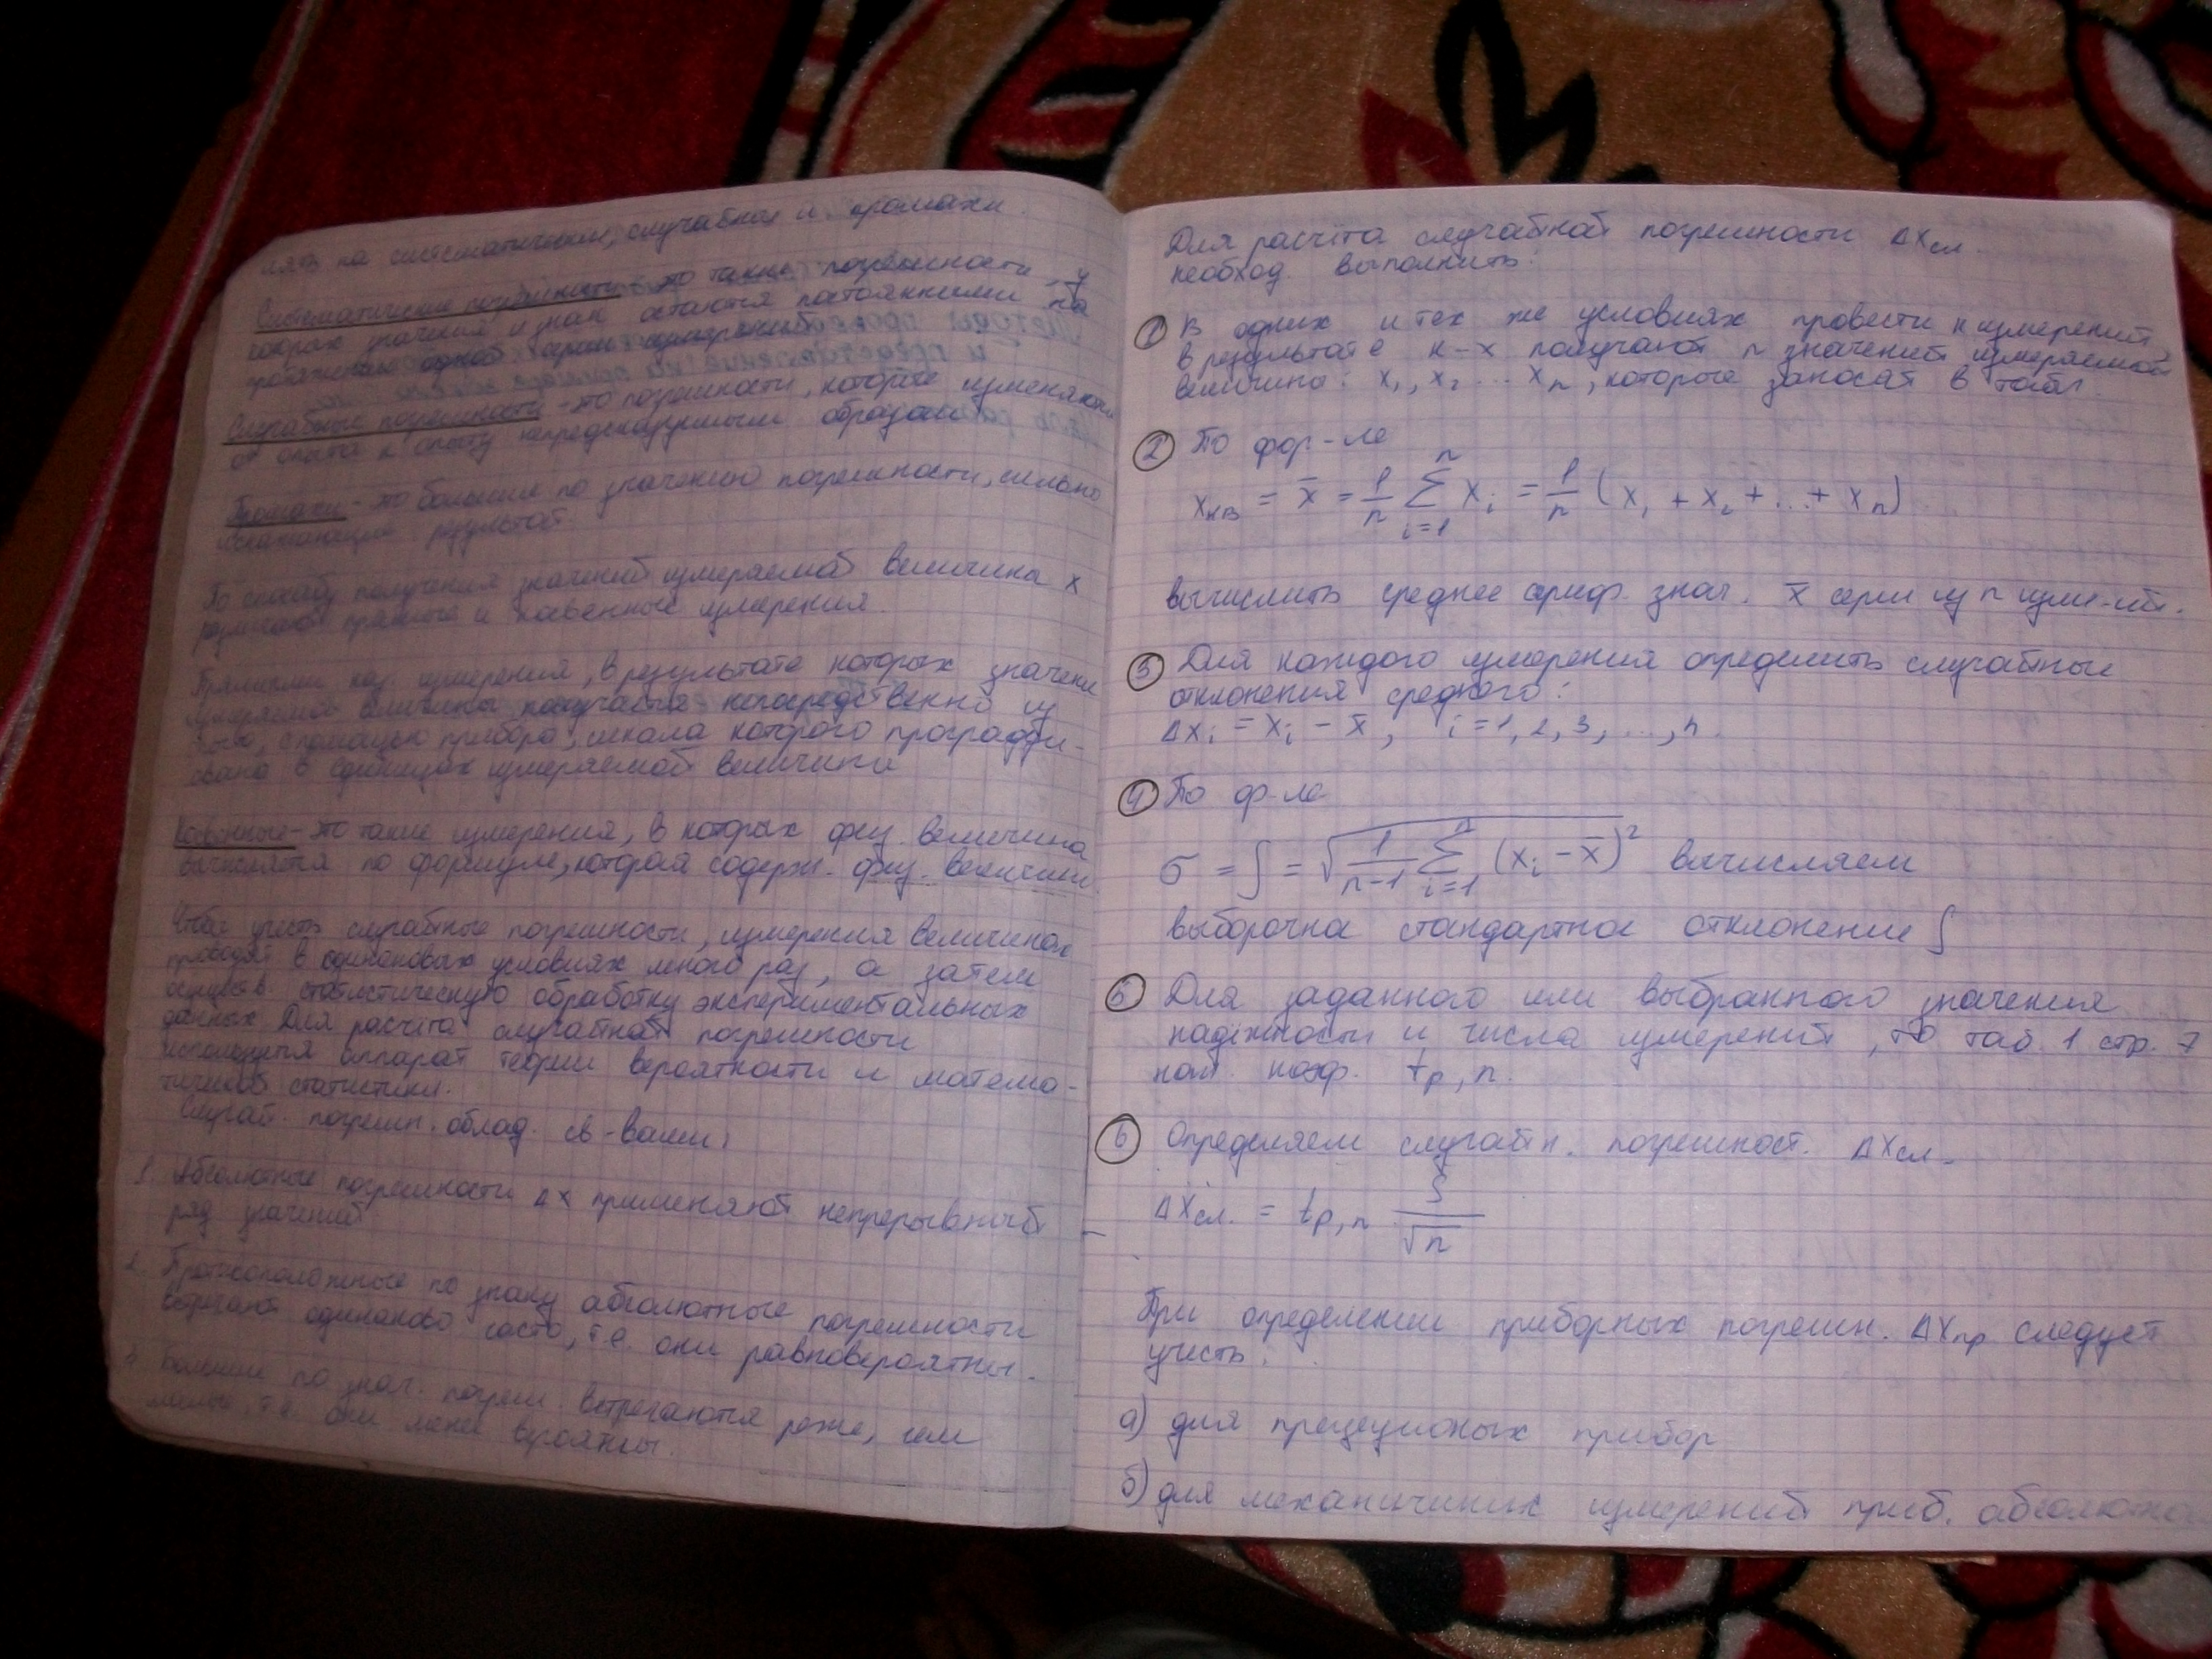 лять на систематические, случайные и промахи.
Систематические погрешности - это такие погрешности, у
которых значения и знак остаются постоянными на
протяжении одной серии измерений
Случайные погрешности - это погрешности, которые изменяются
от опыта к опыту непредсказуемым образом
Промахи - это большие по значению погрешности, сильно
искажающие результат
По способу получения значений измеряемой величина x
различают прямые и косвенные измерения.
Прямыми наз. измерения, в результате которых значени
измеряемой величины получается непосредственно из
с помощью прибора, шкала которого проградуи-
рована в единицах измеряемой величины
Косвенные - это такие измерения, в которых физ. величина
вычисляется по формуле, которая содерж. физ. величины.
Чтобы учесть случайные погрешности, измерения величинах
проводят в одинаковых условиях много раз, а затем
осуществ. статистическую обработку экспериментальных
данных Для расчёта случайной погрешности
используется аппарат теории вероятности и матема-
тической статистики.
Случай. погрешн. облад. св-вами:
1. Абсолютные погрешности Δx применяют непрерывный
ряд значений
2. Противоположные по знаку абсолютные погрешности
встречают одинаково часто, т.е. они равновероятны.
3. Большие по знач. погреш. встречаются реже, чем
малые, т.е. они менее вероятны.
Для расчёта случайной погрешности Δxсл.
необход. выполнить:
① В одних и тех же условиях провести n измерений,
в результате к-х получают n значений измеряемой
величины: x₁, x₂ ... xₙ, которые заносят в табл.
② По фор-ле
xнв = x̄ = 1/n Σ(i=1..n) xᵢ = 1/n (x₁ + x₂ + ... + xₙ)
вычислить среднее ариф. знач. x̄ серии из n изме-ий.
③ Для каждого измерения определить случайные
отклонения среднего:
Δxᵢ = xᵢ - x̄, i = 1, 2, 3, ..., n.
④ По ф-ле
σ = ∫ = √(1/(n-1) Σ(i=1..n) (xᵢ - x̄)²) вычисляем
выборочна стандартное отклонение ∫
⑤ Для заданного или выбранного значения
надёжности и числа измерений, по таб. 1 стр. 7
коэф. tp,n.
⑥ Определяем случайн. погрешност. Δxсл.
Δxсл. = tp,n S/√n
При определении приборных погрешн. Δxпр следует
учесть:
а) для прецеционых прибор
б) для механичиких измерений приб. абсолютна